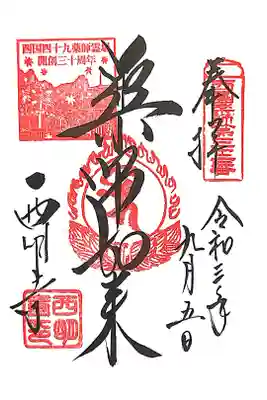 奉拝
令和三年九月五日
薬師如来
西国四十九薬師霊場
開創三十周年
西明寺